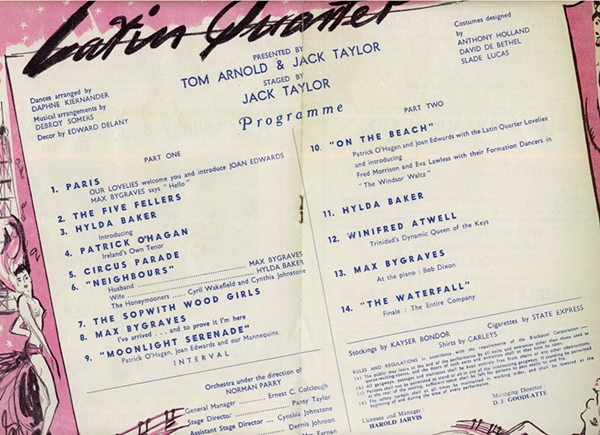 Latin Quarter
PRESENTED BY
TOM ARNOLD & JACK TAYLOR
STAGED BY
JACK TAYLOR
Dances arranged by
DAPHNE KIERNANDER
Musical arrangements by
DEBROY SOMERS
Decor by EDWARD DELANY
Costumes designed
by
ANTHONY HOLLAND
DAVID DE BETHEL
SLADE LUCAS
Programme
PART ONE
1. PARIS
OUR LOVELIES welcome you and introduce JOAN EDWARDS
MAX BYGRAVES says "Hello"
2. THE FIVE FELLERS
3. HYLDA BAKER
Introducing
4. PATRICK O'HAGAN
Ireland's Own Tenor
5. CIRCUS PARADE
6. "NEIGHBOURS"
Husband MAX BYGRAVES
Wife HYLDA BAKER
The Honeymooners Cyril Wakefield and Cynthia Johnstone
7. THE SOPWITH WOOD GIRLS
8. MAX BYGRAVES
I've arrived . . . and to prove it I'm here
9. "MOONLIGHT SERENADE"
Patrick O'Hagan, Joan Edwards and our Mannequins
INTERVAL
Orchestra under the direction of
NORMAN PARRY
General Manager Ernest C. Colclough
Stage Director Pansy Taylor
Assistant Stage Director Cynthia Johnstone
Dennis Johnson
Farnan
PART TWO
10. "ON THE BEACH"
Patrick O'Hagan and Joan Edwards with the Latin Quarter Lovelies
and introducing
Fred Morrison and Eva Lawless with their Formation Dancers in
"The Windsor Waltz"
11. HYLDA BAKER
12. WINIFRED ATWELL
Trinidad's Dynamic Queen of the Keys
13. MAX BYGRAVES
At the piano : Bob Dixon
14. "THE WATERFALL"
Finale : The Entire Company
Stockings by KAYSER BONDOR
Cigarettes by STATE EXPRESS
Shirts by CARLEYS
RULES AND REGULATIONS in accordance with the requirements of the Blackpool Corporation
Licensee and Manager :
HAROLD JARVIS
Managing Director :
D. J. GOODLATTE